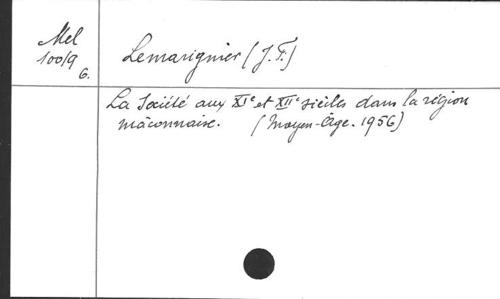 Mel
100/9
6.
Lemarignier (J. F.)
La Société aux XIe et XIIe siècles dans la région
mâconnaise. (Moyen-Âge. 1956)